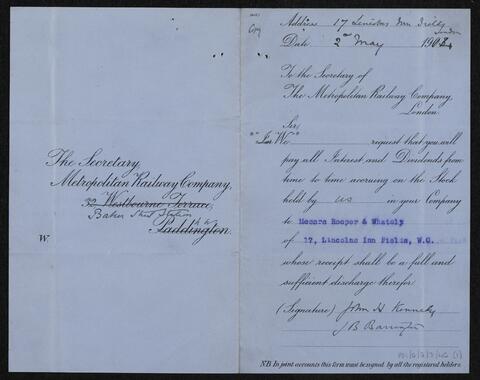 The Secretary,
Metropolitan Railway Company,
32 Westbourne Terrace,
Baker Street Station
Paddington.
W.
Copy
Address 17 Lincolns Inn Fields
London
Date 2nd May 1904
To the Secretary of
The Metropolitan Railway Company,
London.
Sir,
We request that you will
pay all Interest and Dividends from
time to time accruing on the Stock
held by us in your Company
to Messrs Rooper & Whately
of 17, Lincolns Inn Fields, W.C.
whose receipt shall be a full and
sufficient discharge therefor
(Signature) John H Kennedy
J B Barrington
NB In joint accounts this form must be signed by all the registered holders.